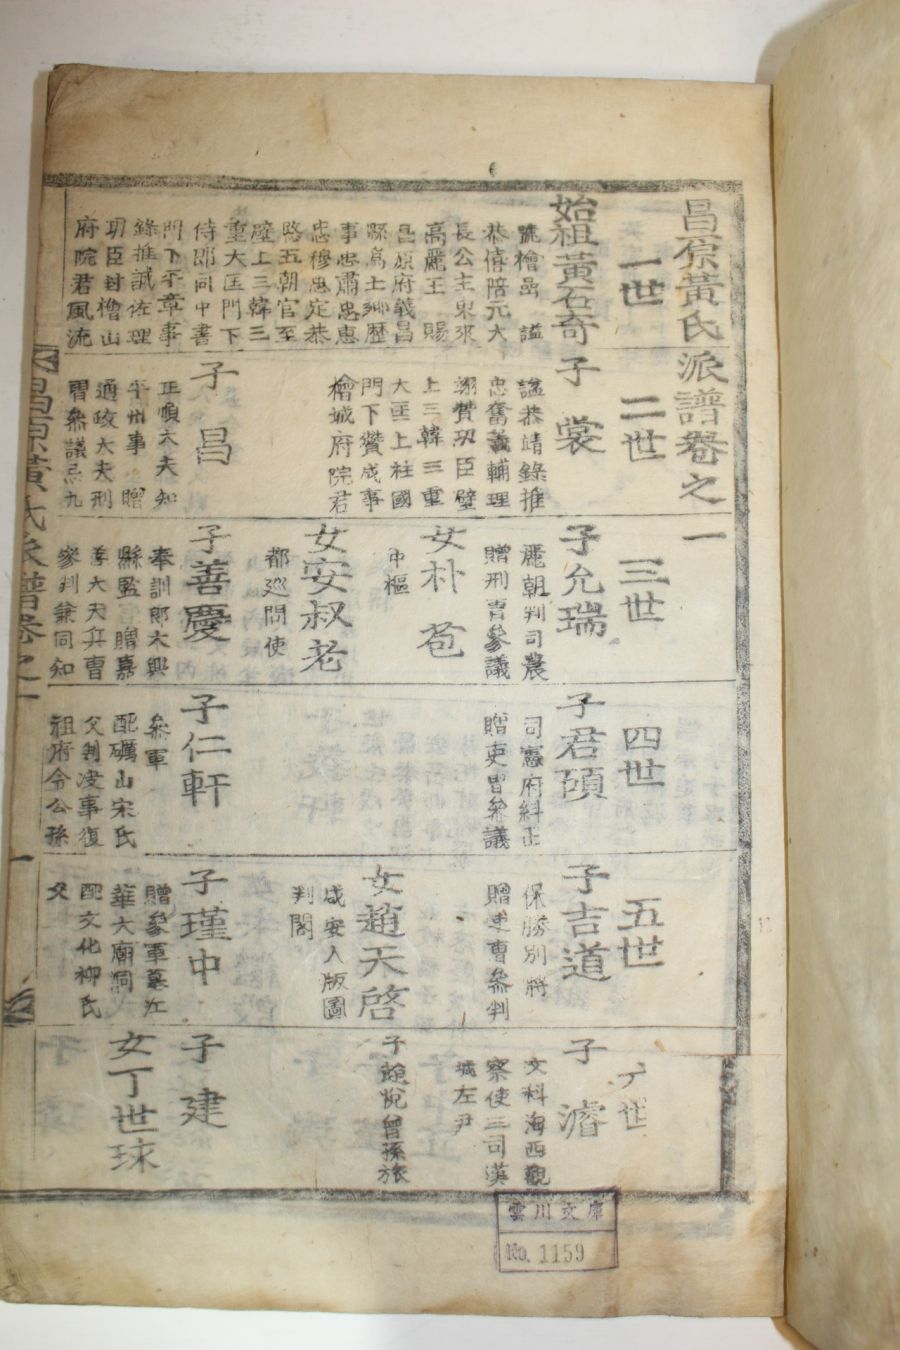 昌原黃氏派譜卷之一
一世
始祖黃石奇
號檜岳 謚
恭僖陪元大
長公主東來
高麗王 賜
昌原府義昌
縣爲土鄉歷
事忠肅忠惠
忠穆忠定恭
愍五朝官至
壁上三韓三
重大匡門下
侍郎同中書
門下平章事
錄推誠佐理
功臣封檜山
府院君風流
二世
子 裳
謚恭靖錄推
忠奮義輔理
翊贊功臣壁
上三韓三重
大匡上柱國
門下贊成事
檜城府院君
子 昌
正順大夫知
平州事 贈
通政大夫刑
曹參議忌九
三世
子允瑞
麗朝判司農
贈刑曹參議
女朴 苞
中樞
女安叔老
都巡問使
子善慶
奉訓郎大興
縣監 贈嘉
善大夫兵曹
參判兼同知
四世
子君碩
司憲府糾正
贈吏曹參議
子仁軒
參軍
配礪山宋氏
父判決事復
祖府令公孫
五世
子吉道
保勝別將
贈吏曹參判
女趙天啓
咸安人版圖
判閣
子瑾中
贈參軍墓江
華大廟洞
配文化柳氏
父
世
子 濬
文科海西觀
察使三司漢
城左尹
子 悅曾孫旅
子 建
女丁世珠
昌原黃氏派譜卷之一
一
雲川文庫
No. 1159